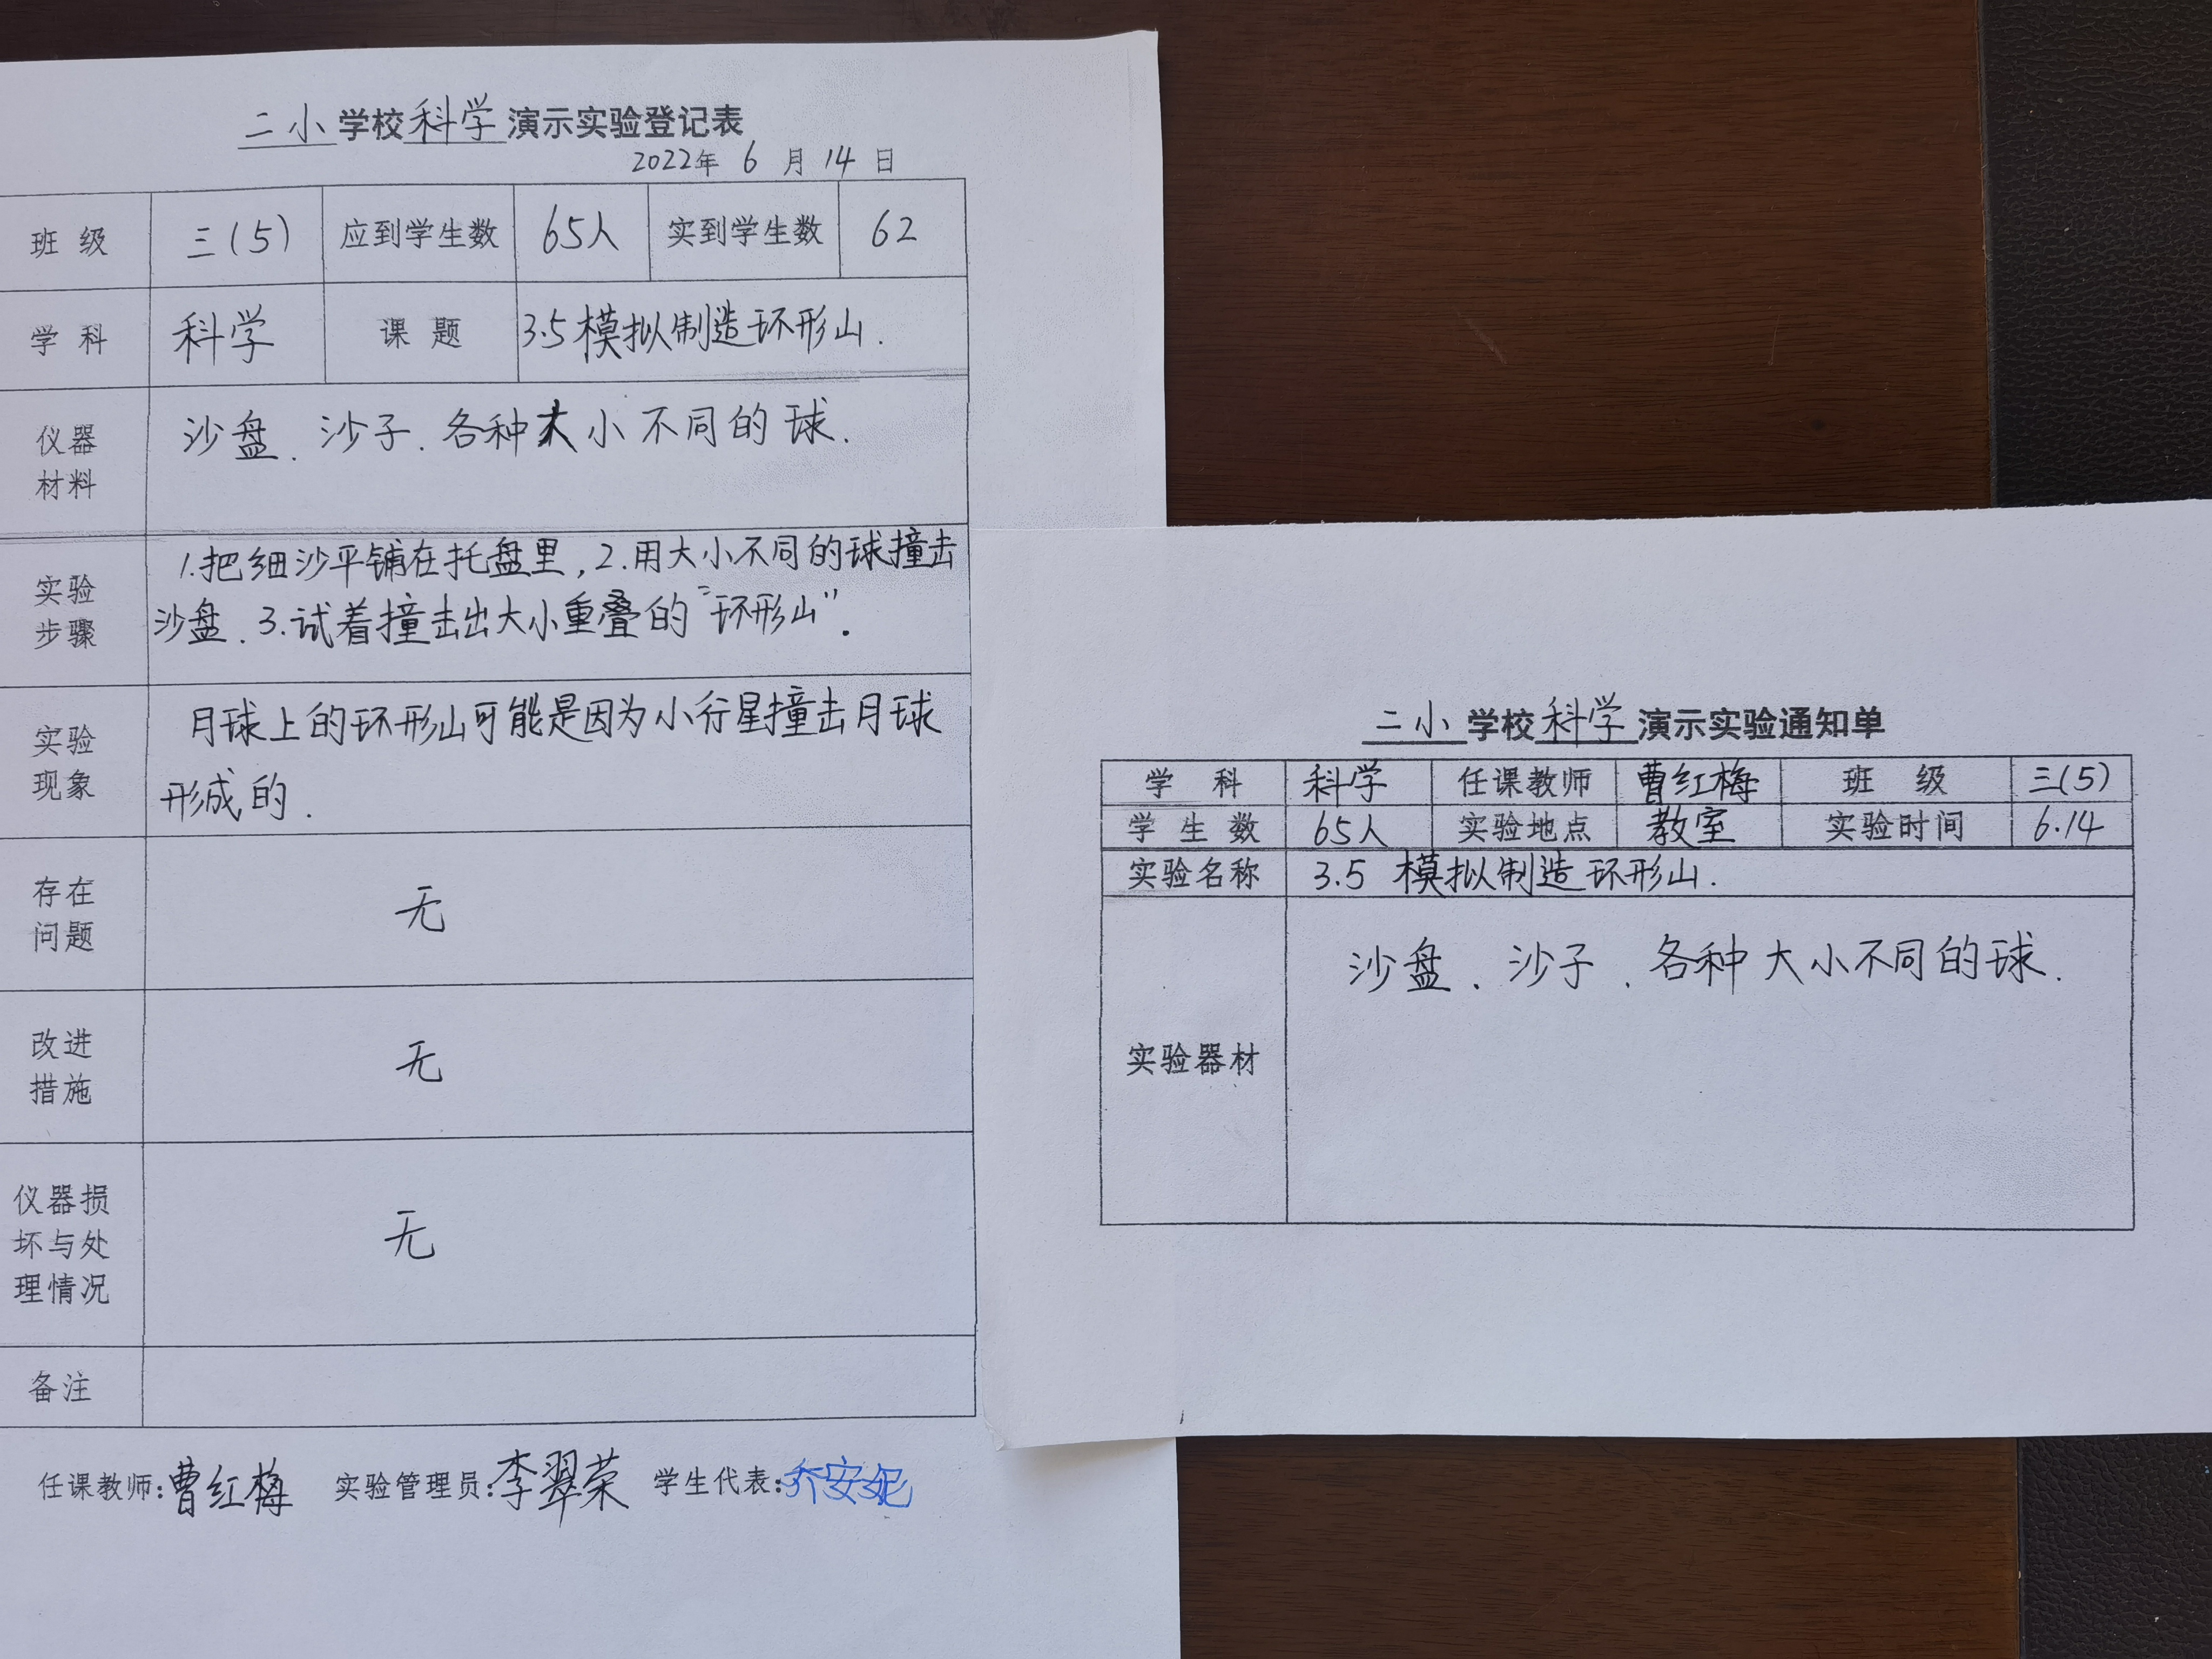 二小学校科学演示实验登记表
2022年 6 月 14 日
班 级 三(5) 应到学生数 65人 实到学生数 62
学 科 科学 课 题 3.5模拟制造环形山.
仪器
材料
沙盘、沙子、各种大小不同的球.
实验
步骤
1.把细沙平铺在托盘里,2.用大小不同的球撞击
沙盘、3.试着撞击出大小重叠的"环形山".
实验
现象
月球上的环形山可能是因为小行星撞击月球
形成的.
存在
问题
无
改进
措施
无
仪器损
坏与处
理情况
无
备注
任课教师:曹红梅 实验管理员:李翠荣 学生代表:乔安妮
二小学校科学演示实验通知单
学 科 科学 任课教师 曹红梅 班 级 三(5)
学 生 数 65人 实验地点 教室 实验时间 6.14
实验名称 3.5 模拟制造环形山.
实验器材 沙盘、沙子、各种大小不同的球.